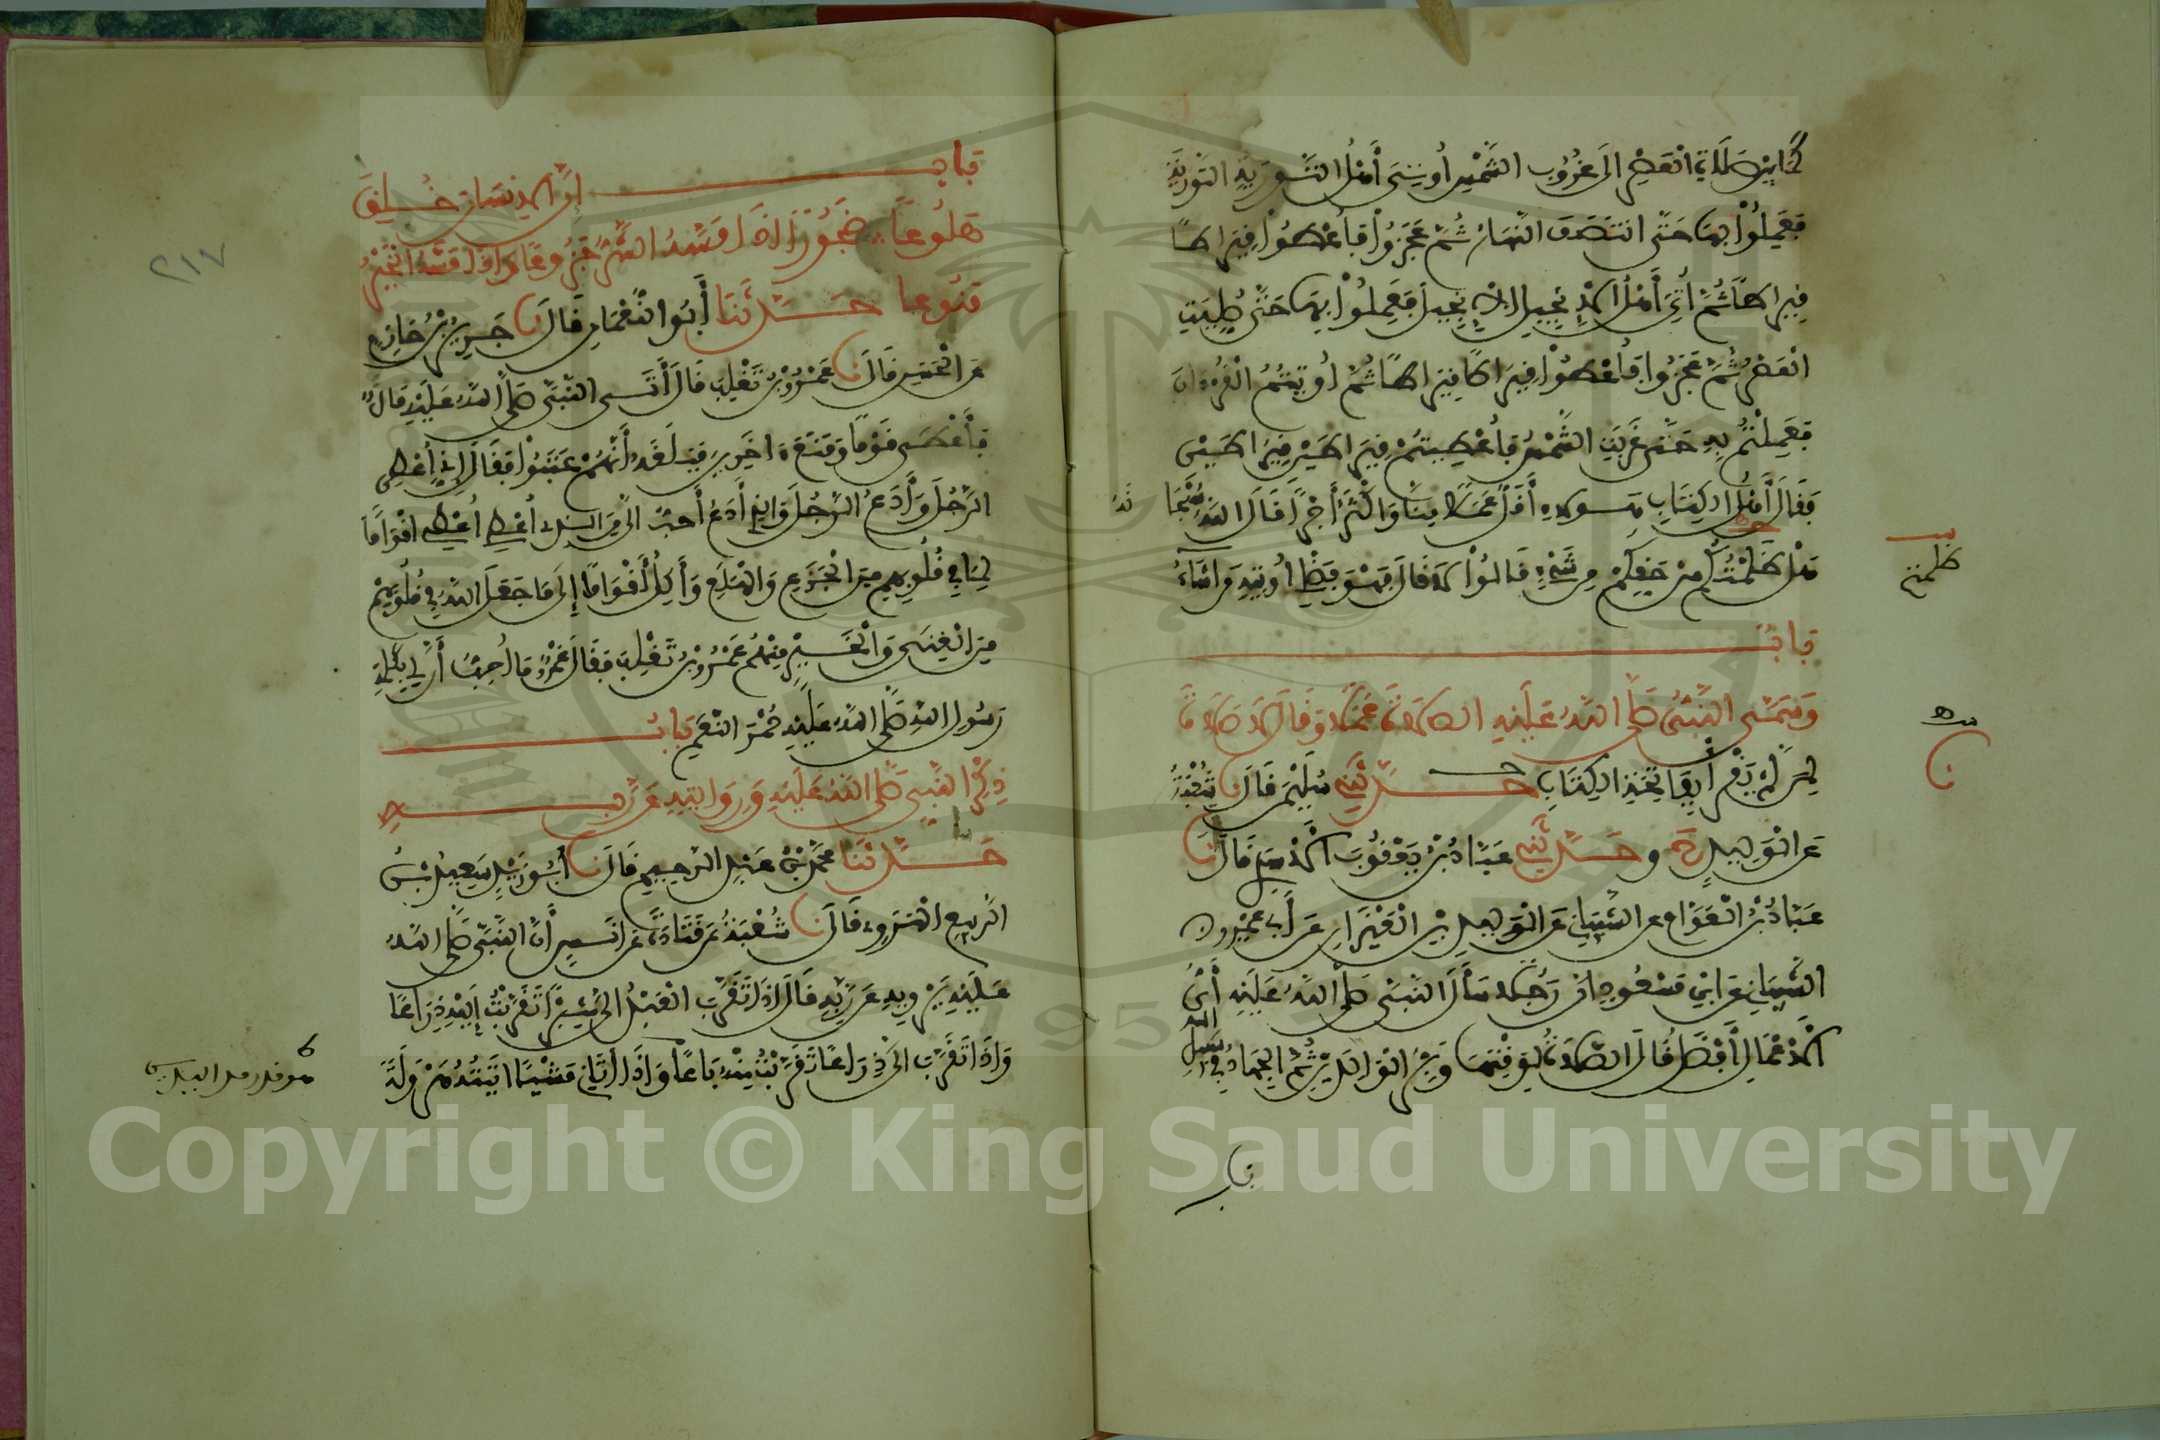 كما بين صلاة العصر إلى غروب الشمس أوتي أهل التورية التورية
فعملوا بها حتى انتصف النهار ثم عجزوا فأعطوا قيراطا
قيراطا ثم أوتي أهل الإنجيل الإنجيل فعملوا بها حتى صليت
العصر ثم عجزوا فأعطوا قيراطا قيراطا ثم أوتيتم القرءان
فعملتم به حتى غربت الشمس فأعطيتم قيراطين قيراطين
فقال أهل الكتاب هؤلاء أقل عملا منا وأكثر أجرا قال الله
هل ظلمتكم من حقكم من شيء قالوا لا قال فهو فضلي أوتيه من أشاء
ظلمتم
باب
وسمى النبي صلى الله عليه الصلاة عملا وقال لا صلاة
لمن لم يقرأ بفاتحة الكتاب حدثني سليمن قال نا شعبة
عن الوليد ح وحدثني عباد بن يعقوب الأسدي قال نا
عباد بن العوام عن الشيباني عن الوليد بن العيزار عن أبي عمرو
الشيباني عن ابن مسعود أن رجلا سأل النبي صلى الله عليه أي
الأعمال أفضل قال الصلاة لوقتها وبر الوالدين ثم الجهاد في
سبيل الله
باب إن الإنسان خلق
هلوعا ضجورا إذا مسه الشر جزوعا وإذا مسه الخير
منوعا حدثنا أبو النعمان قال نا جرير بن حازم
عن الحسن قال نا عمرو بن تغلب قال أتى النبي صلى الله عليه مال
فأعطى قوما ومنع ءاخرين فبلغه أنهم عتبوا فقال إني أعطي
الرجل وأدع الرجل والذي أدع أحب إلي من الذي أعطي أعطي أقواما
لما في قلوبهم من الجزع والهلع وأكل أقواما إلى ما جعل الله في قلوبهم
من الغنى والخير منهم عمرو بن تغلب فقال عمرو ما أحب أن لي بكلمة
رسول الله صلى الله عليه حمر النعم باب
ذكر النبي صلى الله عليه وروايته عن ربه
حدثنا محمد بن عبد الرحيم قال نا أبو زيد سعيد بن
الربيع الهروي قال نا شعبة عن قتادة عن أنس أن النبي صلى الله
عليه يرويه عن ربه قال إذا تقرب العبد إلي شبرا تقربت إليه ذراعا
وإذا تقرب إلي ذراعا تقربت منه باعا وإذا أتاني مشيا أتيته هرولة